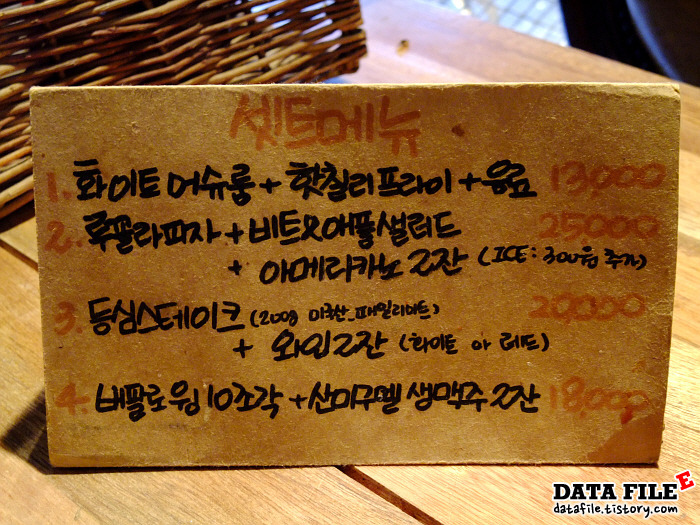 셋트메뉴
1. 화이트 머쉬룸 + 핫칠리프라이 + 음료 13,000
2. 루꼴라피자 + 비트&애플샐러드 25000
+ 아메리카노 2잔 (ICE: 300원 추가)
3. 등심스테이크 (200g 미국산_패밀리마트) 20,000
+ 와인2잔 (화이트 or 레드)
4. 버팔로윙 10조각 + 산미구엘 생맥주 2잔 18,000
DATA FILE E
datafile.tistory.com